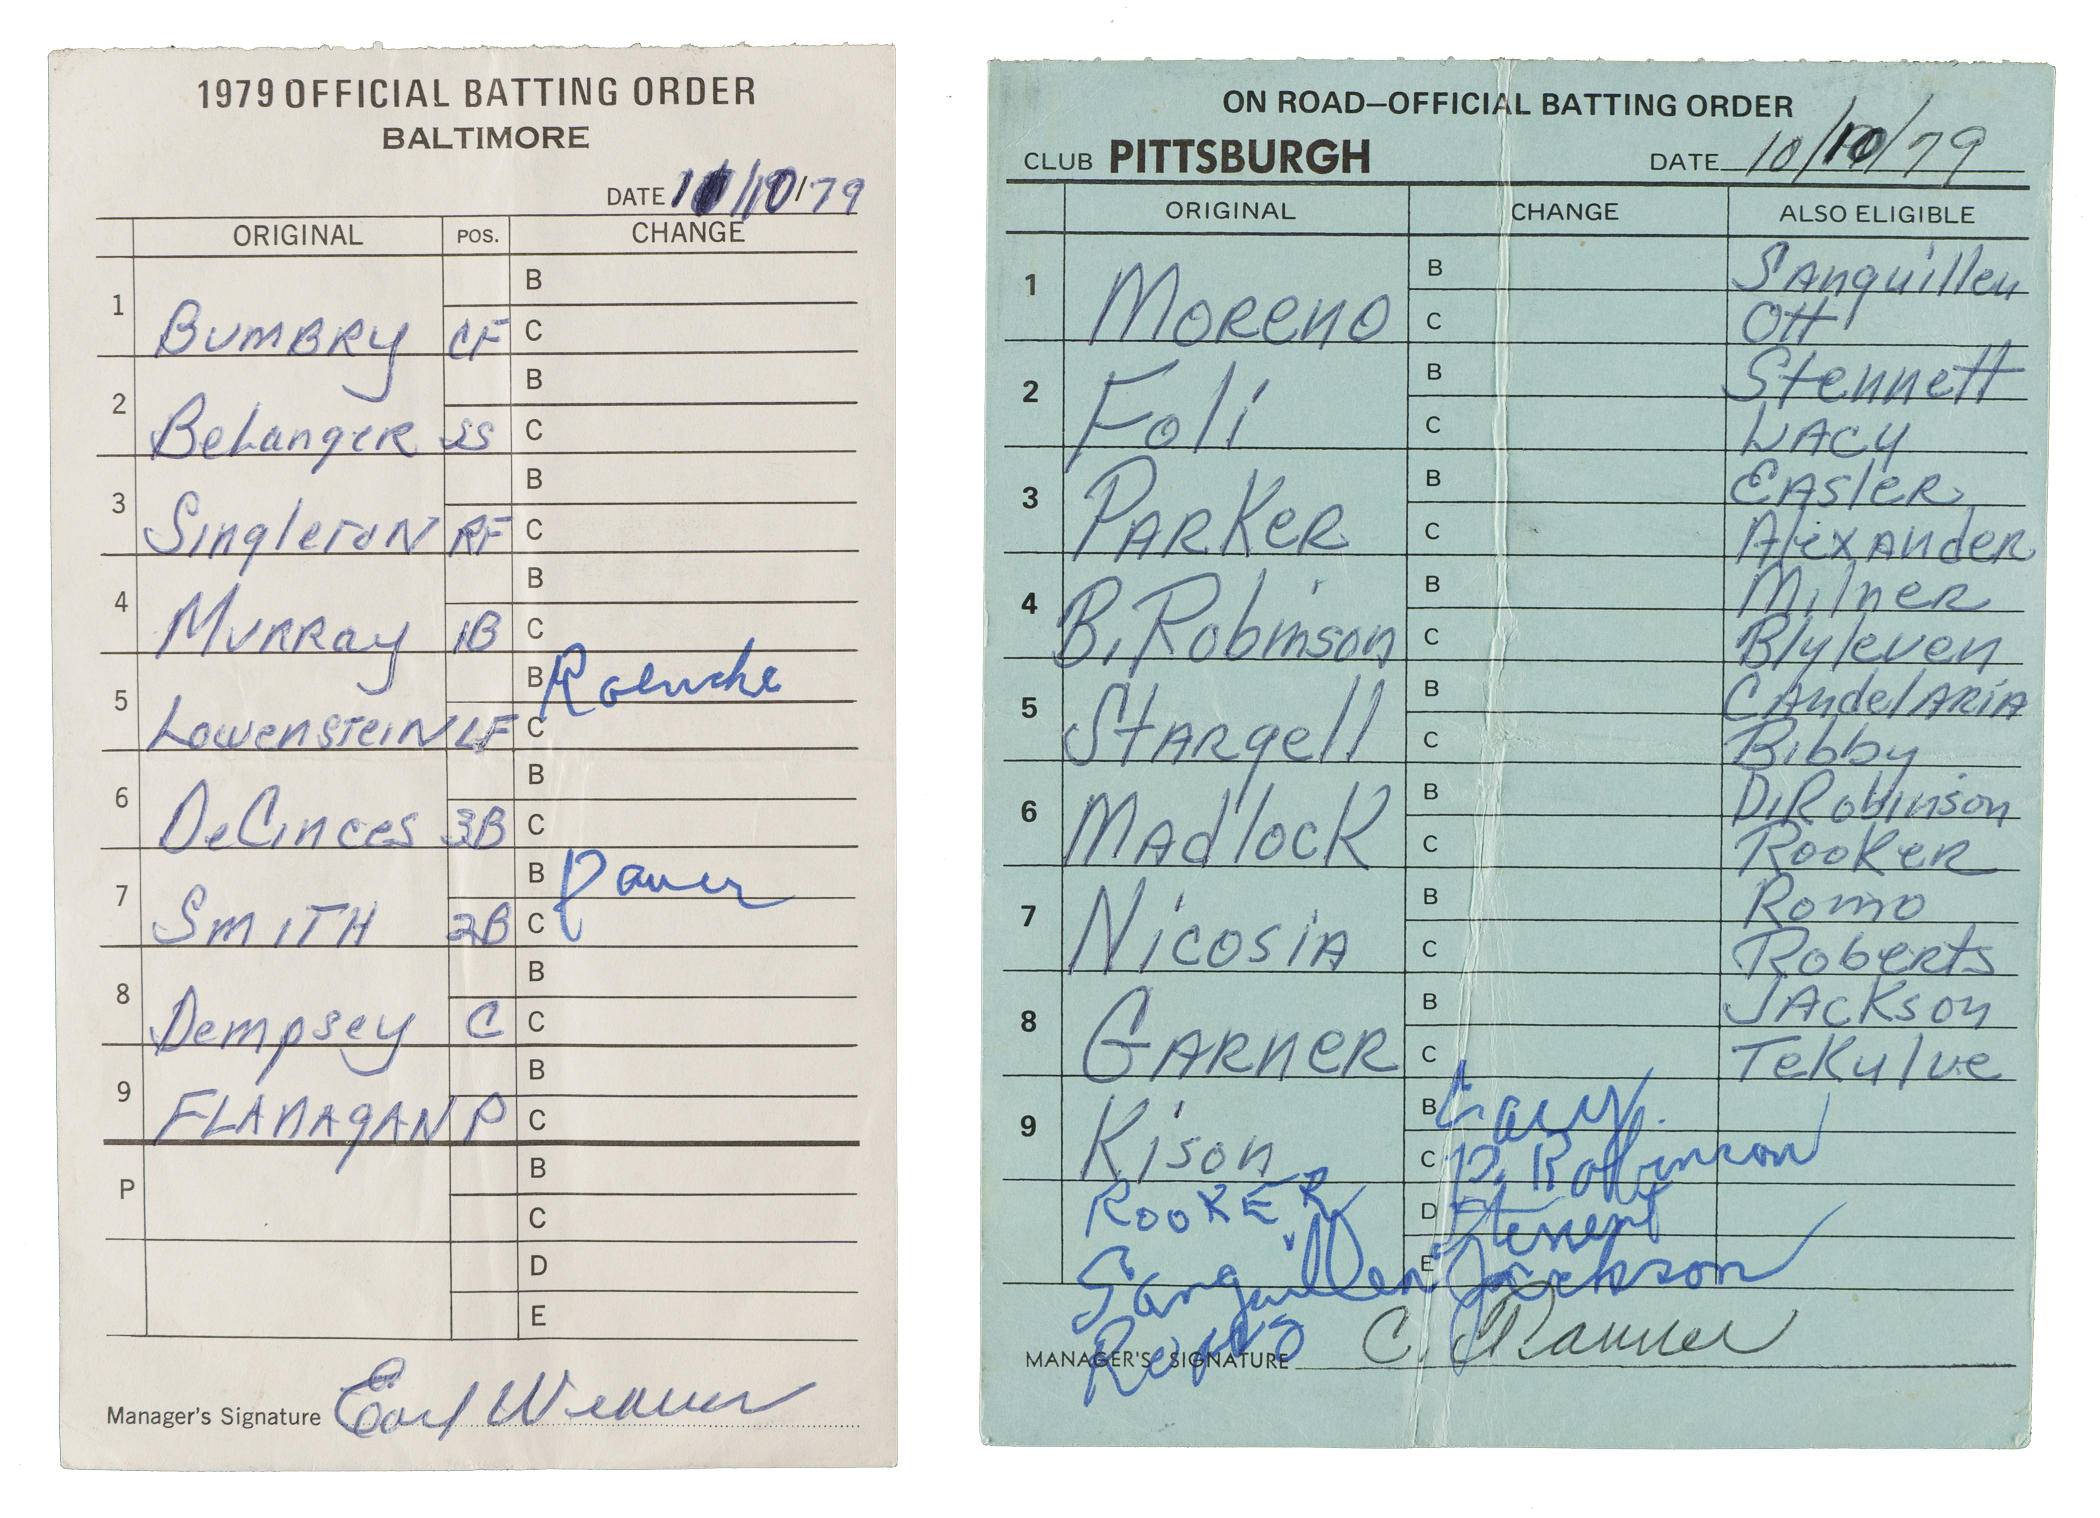 1979 OFFICIAL BATTING ORDER
BALTIMORE
DATE 10/10/79
ORIGINAL POS. CHANGE
1 BUMBRY CF B
C
2 BeLangeR SS B
C
3 SingletoN RF B
C
4 MURRay 1B B
C
5 LowensteiN LF B Roenicke
C
6 DeCinces 3B B
C
7 SMITH 2B B Dauer
C
8 Dempsey C B
C
9 FLANAgAN P B
C
P B
C
D
E
Manager's Signature Earl Weaver
ON ROAD—OFFICIAL BATTING ORDER
CLUB PITTSBURGH DATE 10/10/79
ORIGINAL CHANGE ALSO ELIGIBLE
1 Moreno B SAnguillen
C Ott
2 Foli B Stennett
C LACy
3 PARKeR B EAsleR
C AlexAndeR
4 B. Robinson B MilneR
C Blyleven
5 StARgell B CAndelARiA
C Bibby
6 MAdlocK B D. Robinson
C RooKeR
7 NicosiA B Romo
C Roberts
8 GARNeR B JAcKson
C TeKulve
9 Kison B Lacy
C D. Robinson
ROOKER D Stennett
Sanguillen E Jackson
MANAGER'S SIGNATURE C. Tanner